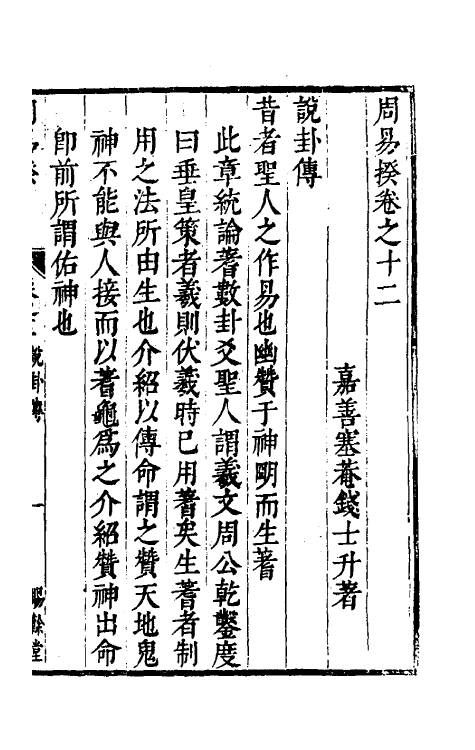 周易揆卷之十二
嘉善塞菴錢士升著
說卦傳
昔者聖人之作易也幽贊于神明而生蓍
此章統論蓍數卦爻聖人謂羲文周公乾鑿度
曰垂皇策者羲則伏羲時已用蓍矣生蓍者制
用之法所由生也介紹以傳命謂之贊天地鬼
神不能與人接而以蓍龜為之介紹贊神出命
卽前所謂佑神也
說卦傳
一
賜餘堂